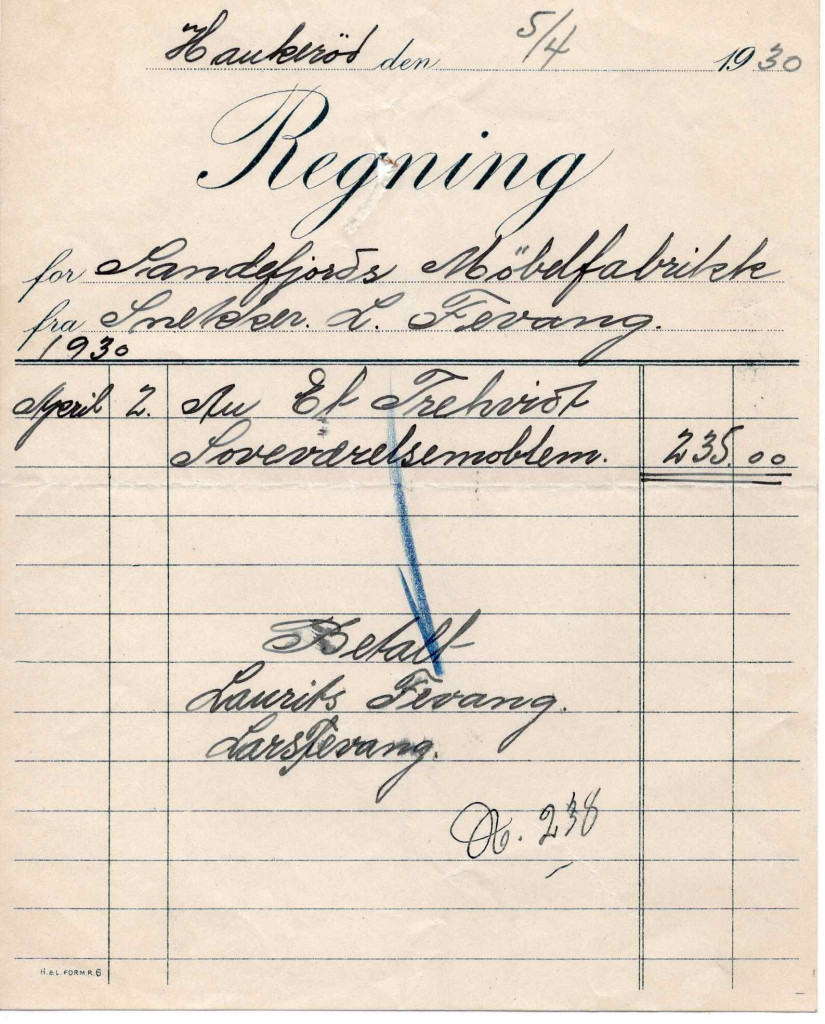 Haukerød den 5/4 1930
Regning
for Sandefjords Möbelfabrikk
fra Snekker. L. Fevang.
1930
April 2. Au Et Trehvidt
Soveværelsemoblem. 235.00
Betalt
Laurits Fevang.
Lars Fevang.
No. 238
H. & L. FORM R. 6